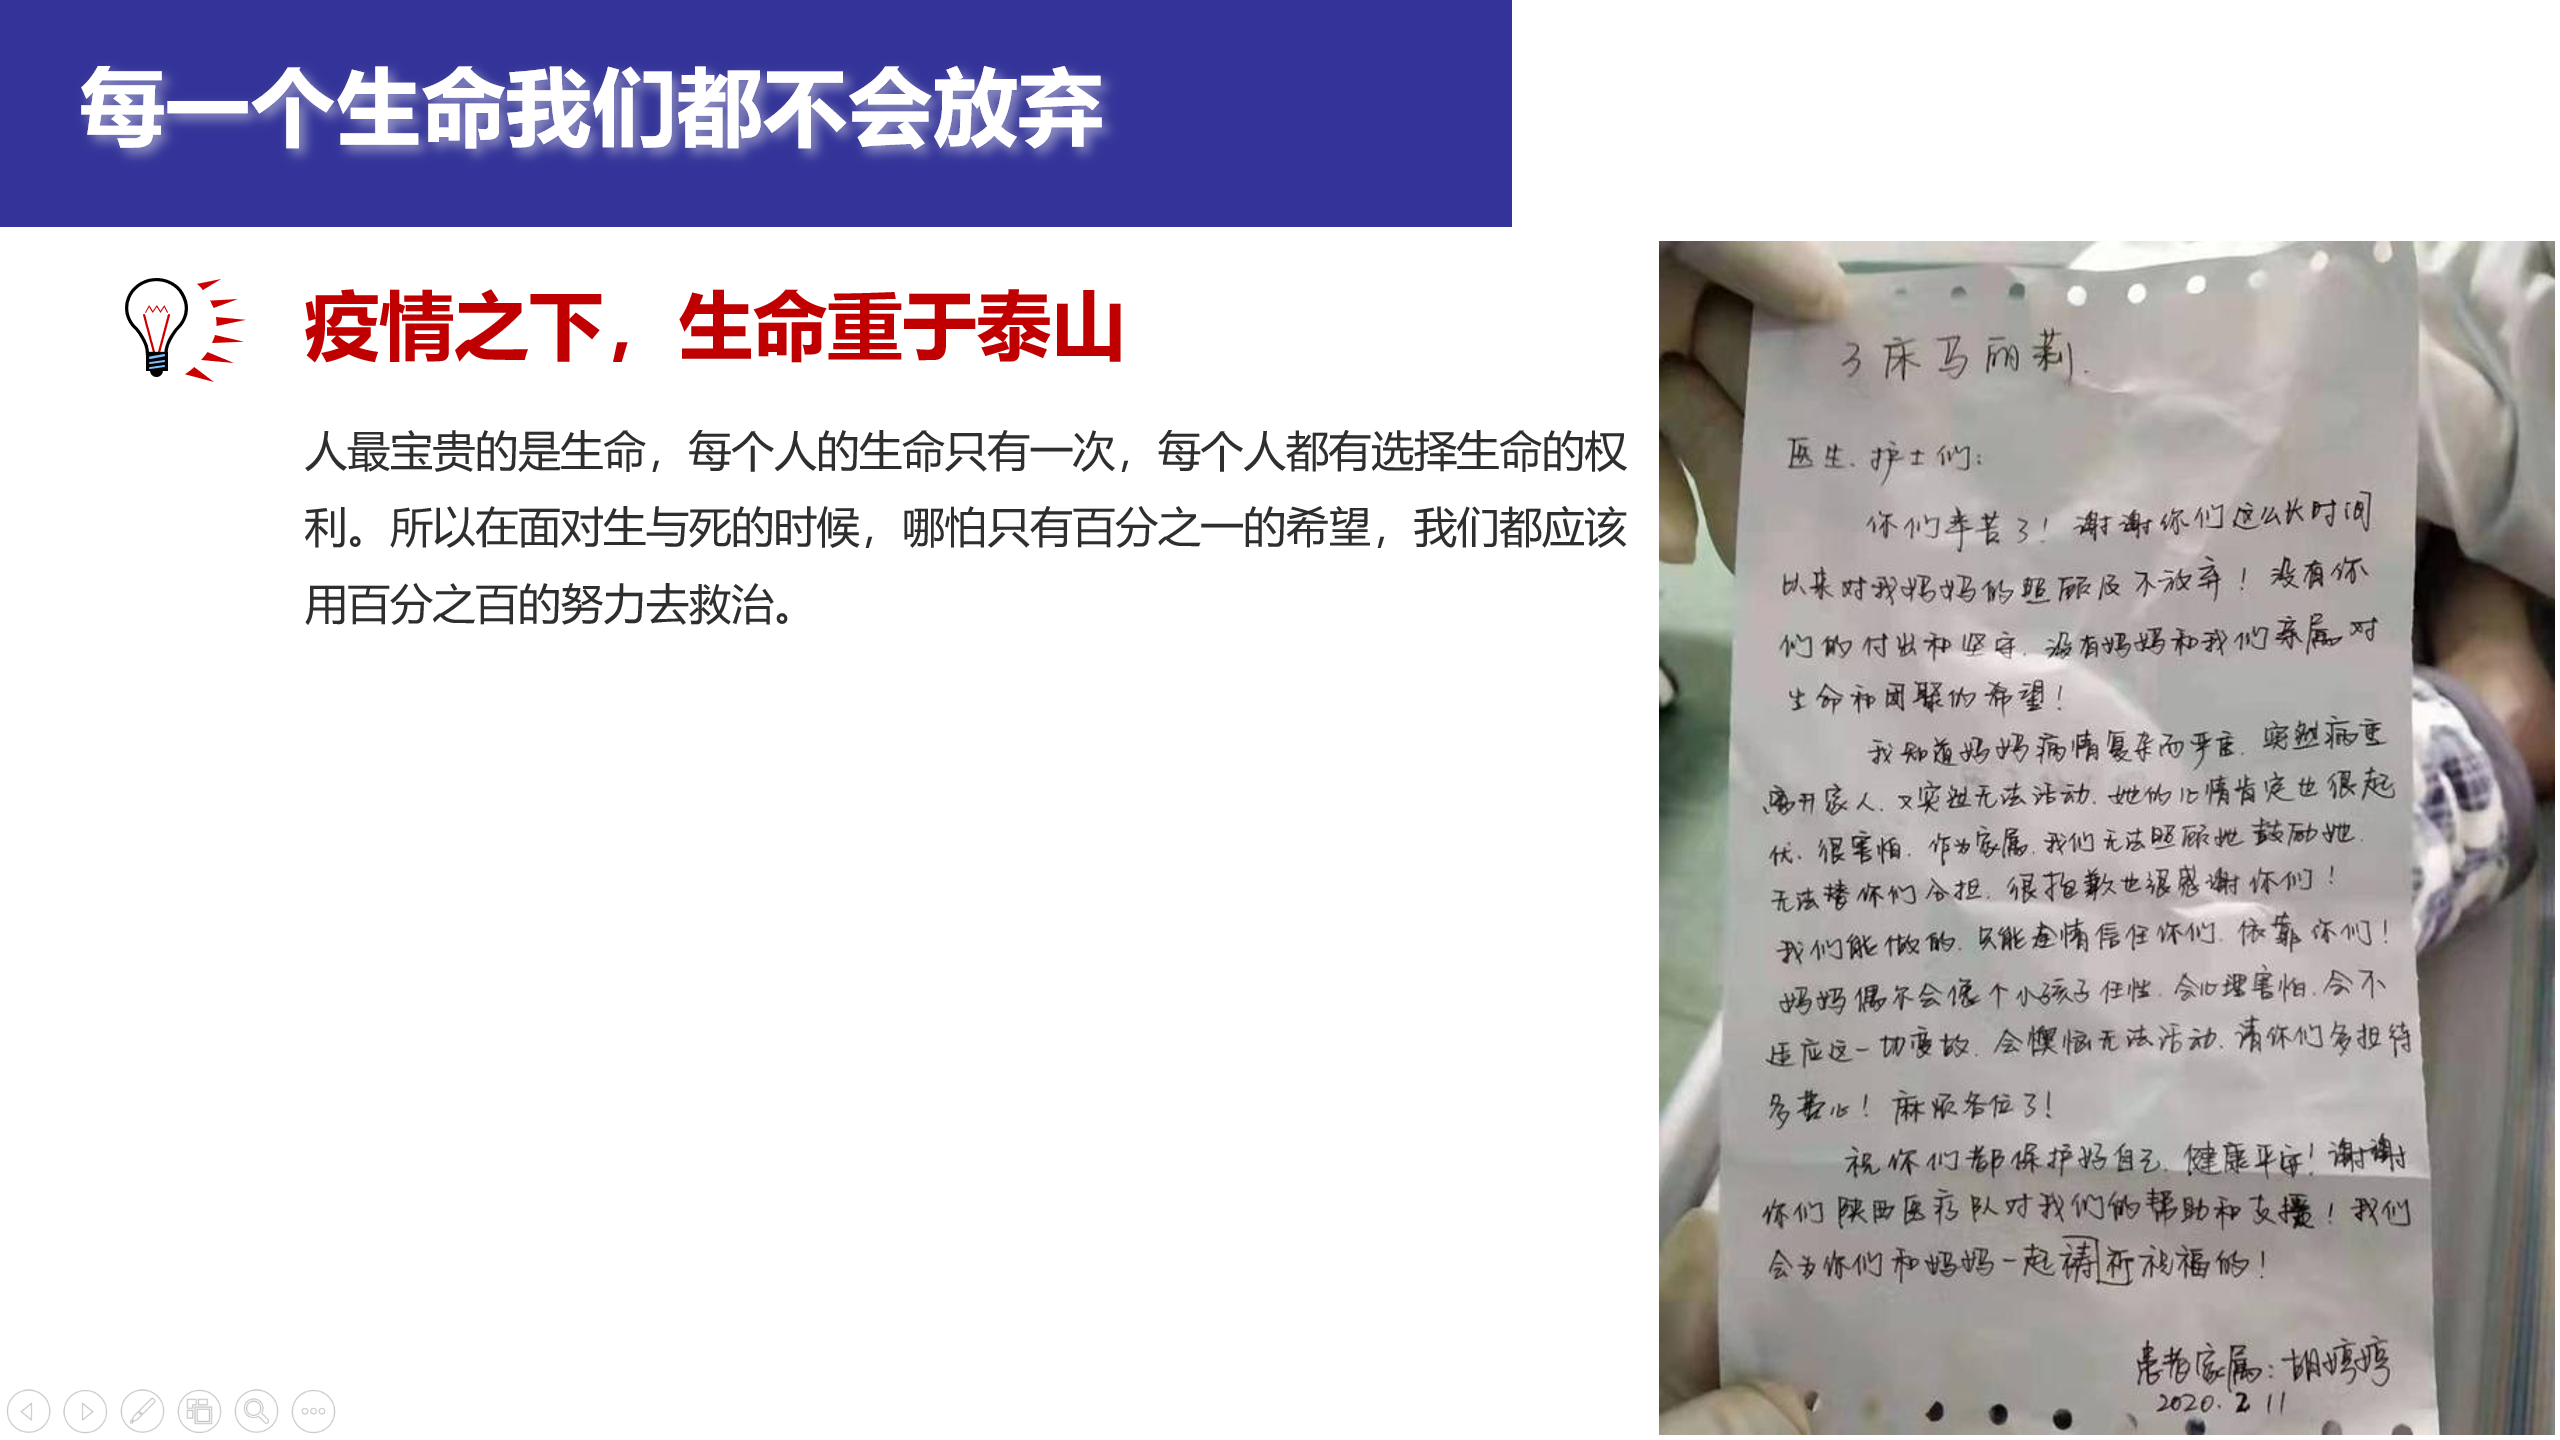 每一个生命我们都不会放弃
疫情之下，生命重于泰山
人最宝贵的是生命，每个人的生命只有一次，每个人都有选择生命的权
利。所以在面对生与死的时候，哪怕只有百分之一的希望，我们都应该
用百分之百的努力去救治。
3床马丽莉.
医生、护士们：
你们辛苦了！谢谢你们这么长时间
以来对我妈妈的照顾及不放弃！没有你
们的付出和坚守，没有妈妈和我们亲属对
生命和团聚的希望！
我知道妈妈病情复杂而严重，突然病重
离开家人，又突然无法活动，她的心情肯定也很起
伏、很害怕，作为家属，我们无法照顾她鼓励她，
无法替你们分担，很抱歉也很感谢你们！
我们能做的，只能尽情信任你们，依靠你们！
妈妈偶尔会像个小孩子任性，会心理害怕，会不
适应这一切变故，会懊恼无法活动，请你们多担待
多费心！麻烦各位了！
祝你们都保护好自己，健康平安！谢谢
你们陕西医疗队对我们的帮助和支援！我们
会为你们和妈妈一起祷祈祝福的！
患者家属：胡婷婷
2020.2 11